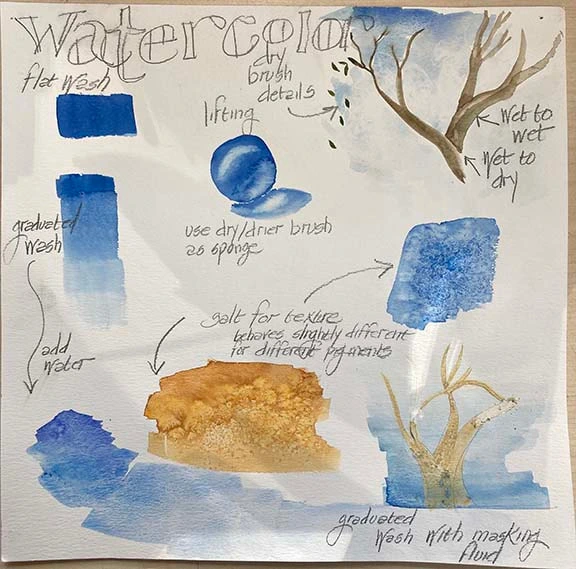 Watercolor
flat wash
dry
brush
details
lifting
Wet to
wet
Wet to
dry
graduated
wash
use dry/drier brush
as sponge
salt for texture
behaves slightly different
for different pigments
add
water
graduated
wash with masking
fluid